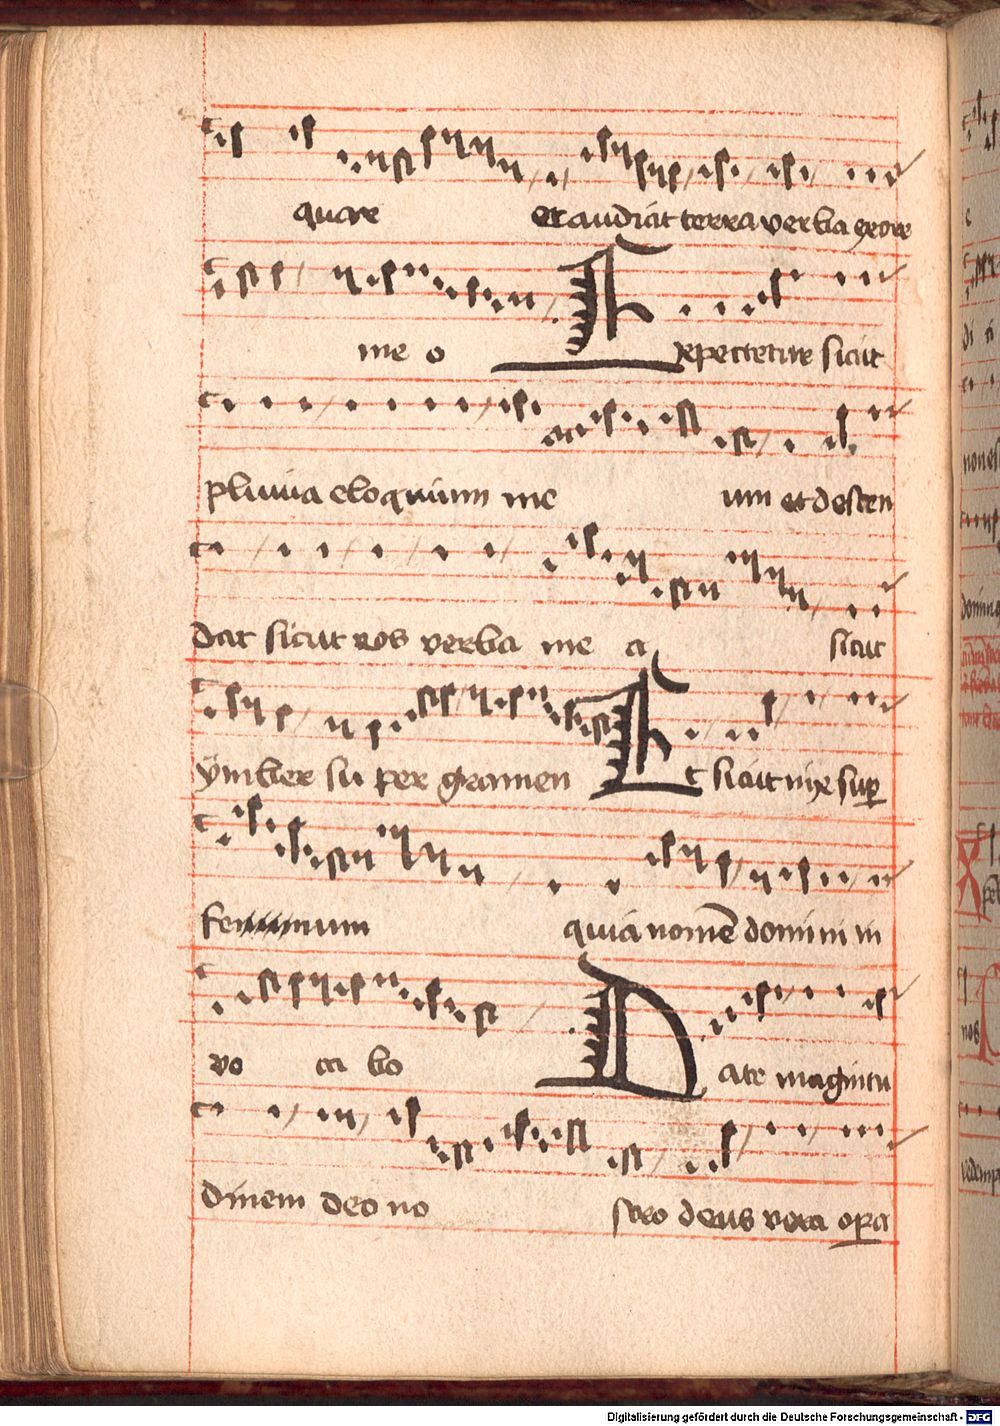 quare et audiat terra verba exore
me o Expectetur sicut
pluuia eloquium me um et descen
dat sicut ros verba me a sicut
ymber su per gramen Et sicut nix super
fenum quia nomen domini in
vo ca bo Date magnitu
dinem deo no stro deus vera opera
Digitalisierung gefördert durch die Deutsche Forschungsgemeinschaft - DFG